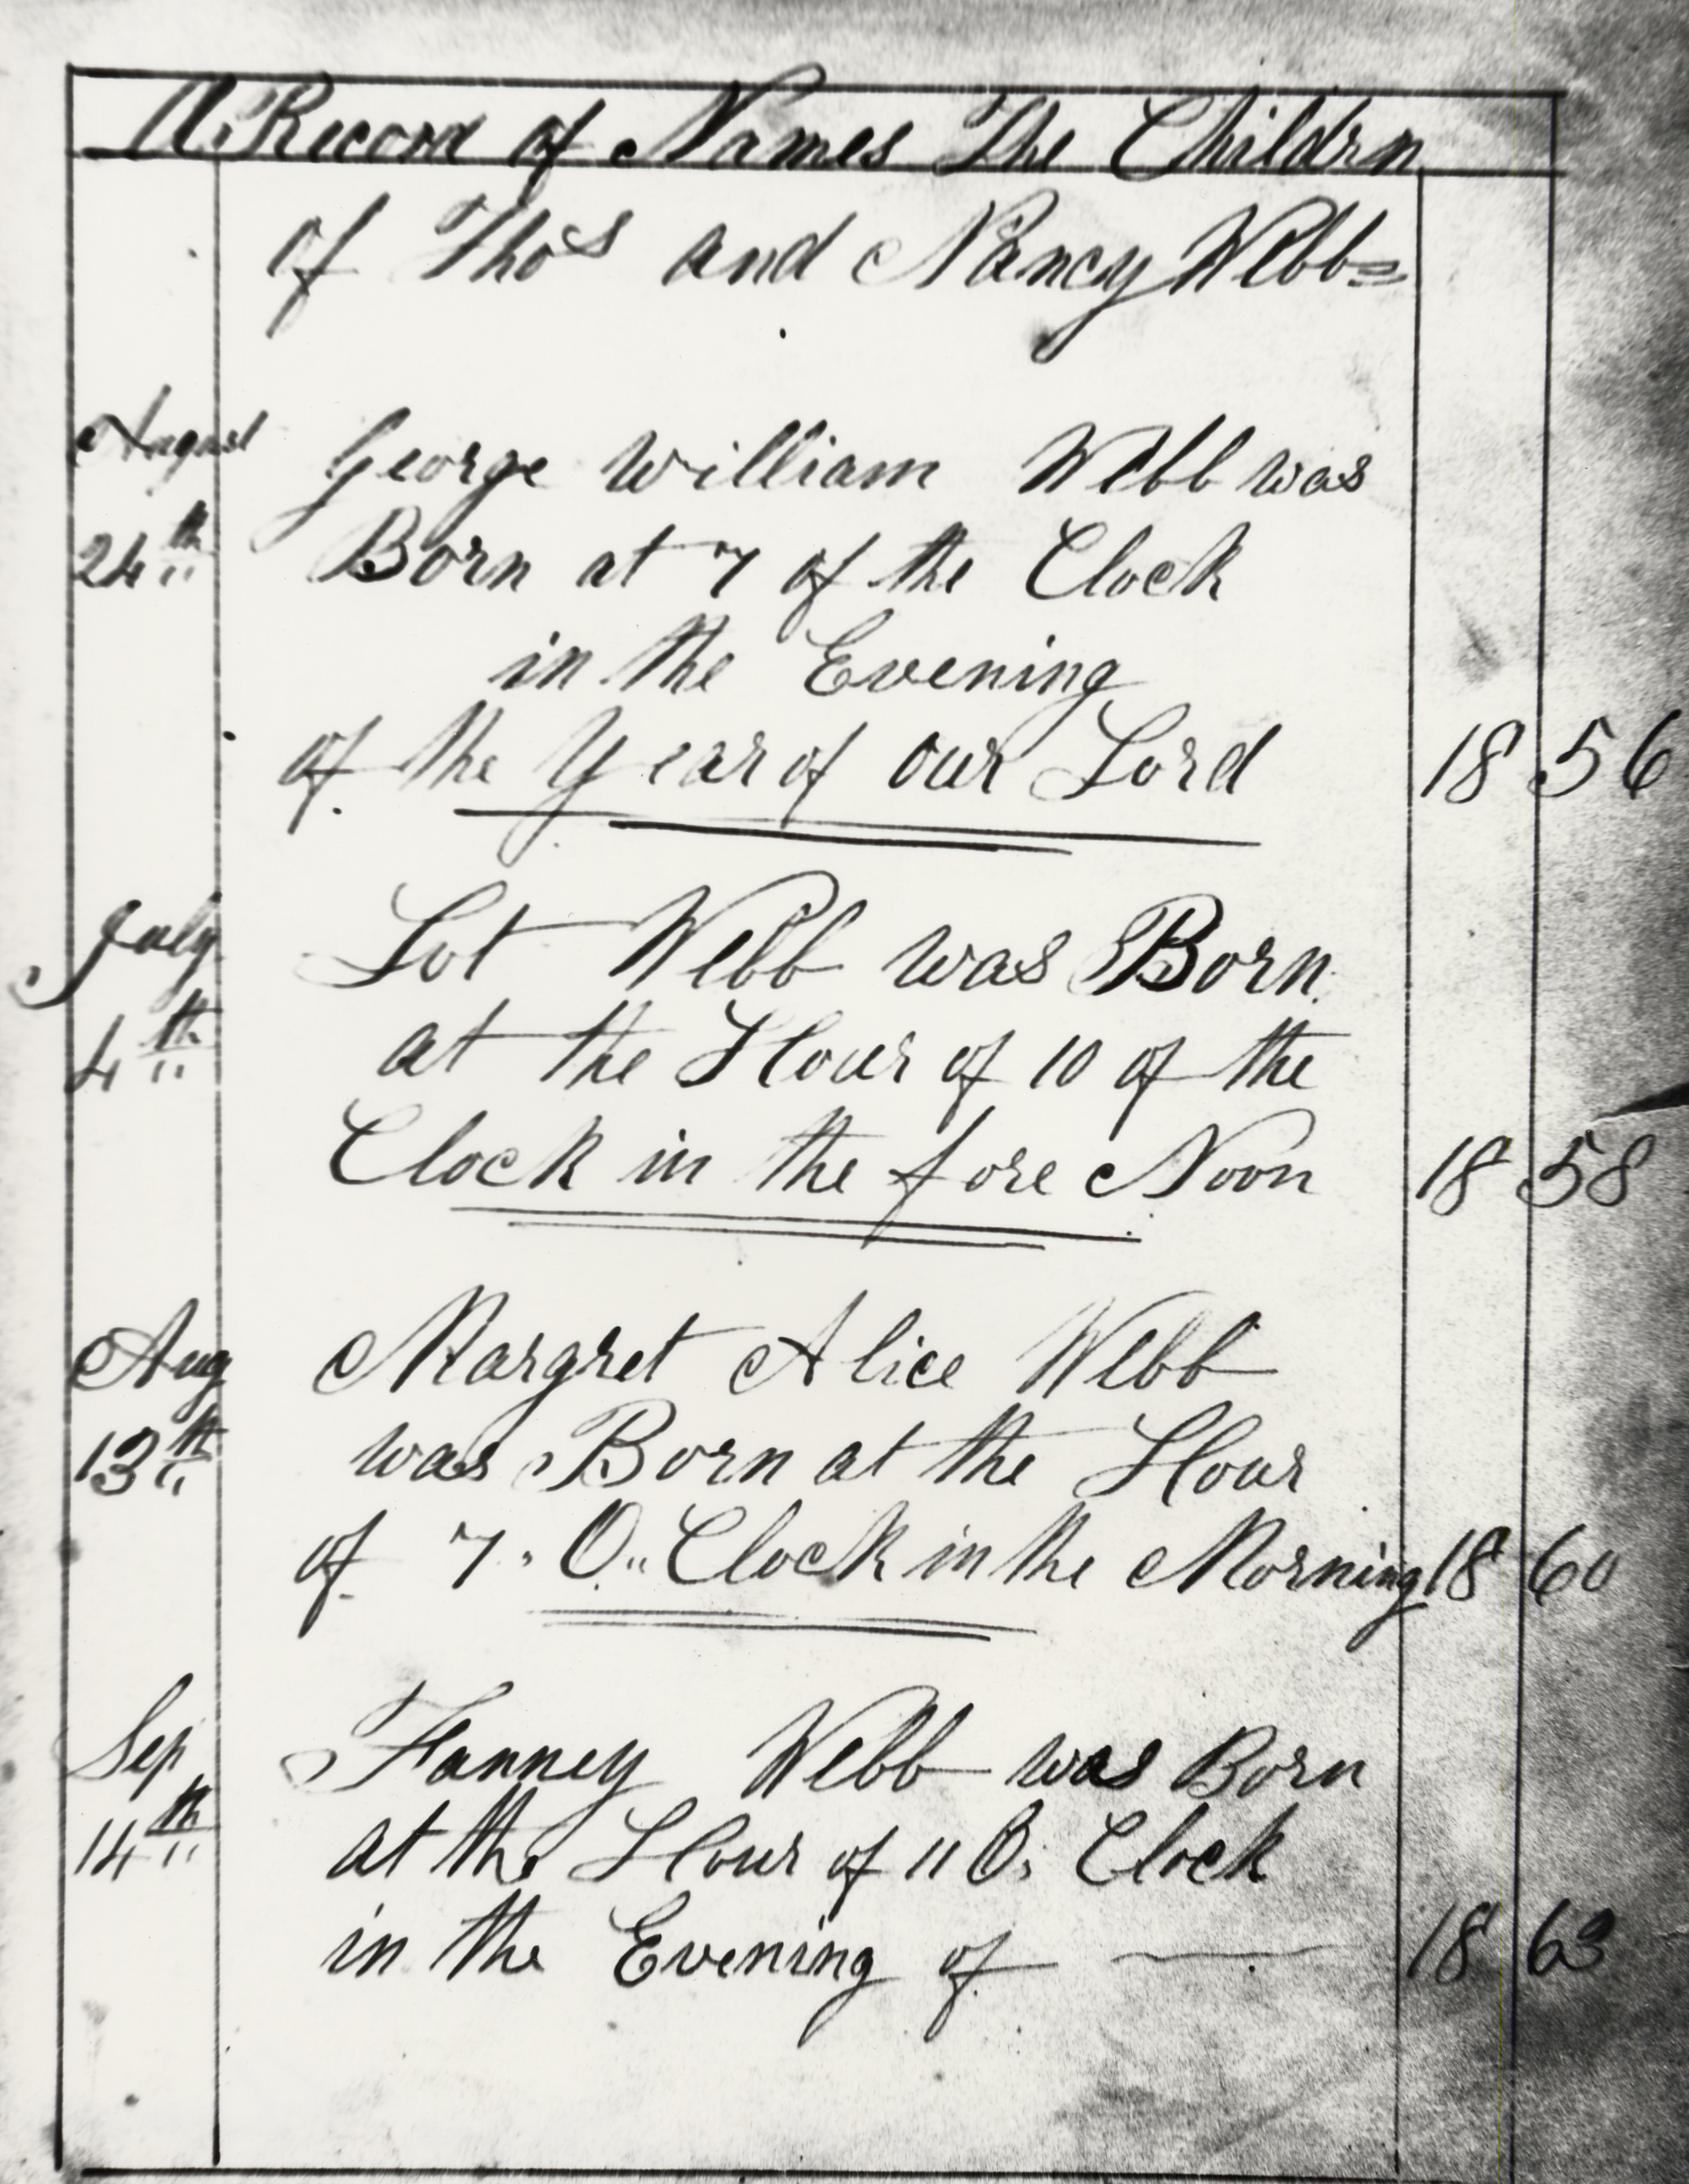 A Record of Names The Childrn
of Thos and Nancy Webb=
August George William Webb was
24th Born at 7 of the Clock
in the Evening
of the Year of our Lord 1856
July Lot Webb was Born
4th at the Hour of 10 of the
Clock in the fore Noon 1858
Aug Margret Alice Webb
13th was Born at the Hour
of 7. O,, Clock in the Morning 1860
Sep Fanney Webb was Born
14th at the Hour of 11 O, Clock
in the Evening of — 1863